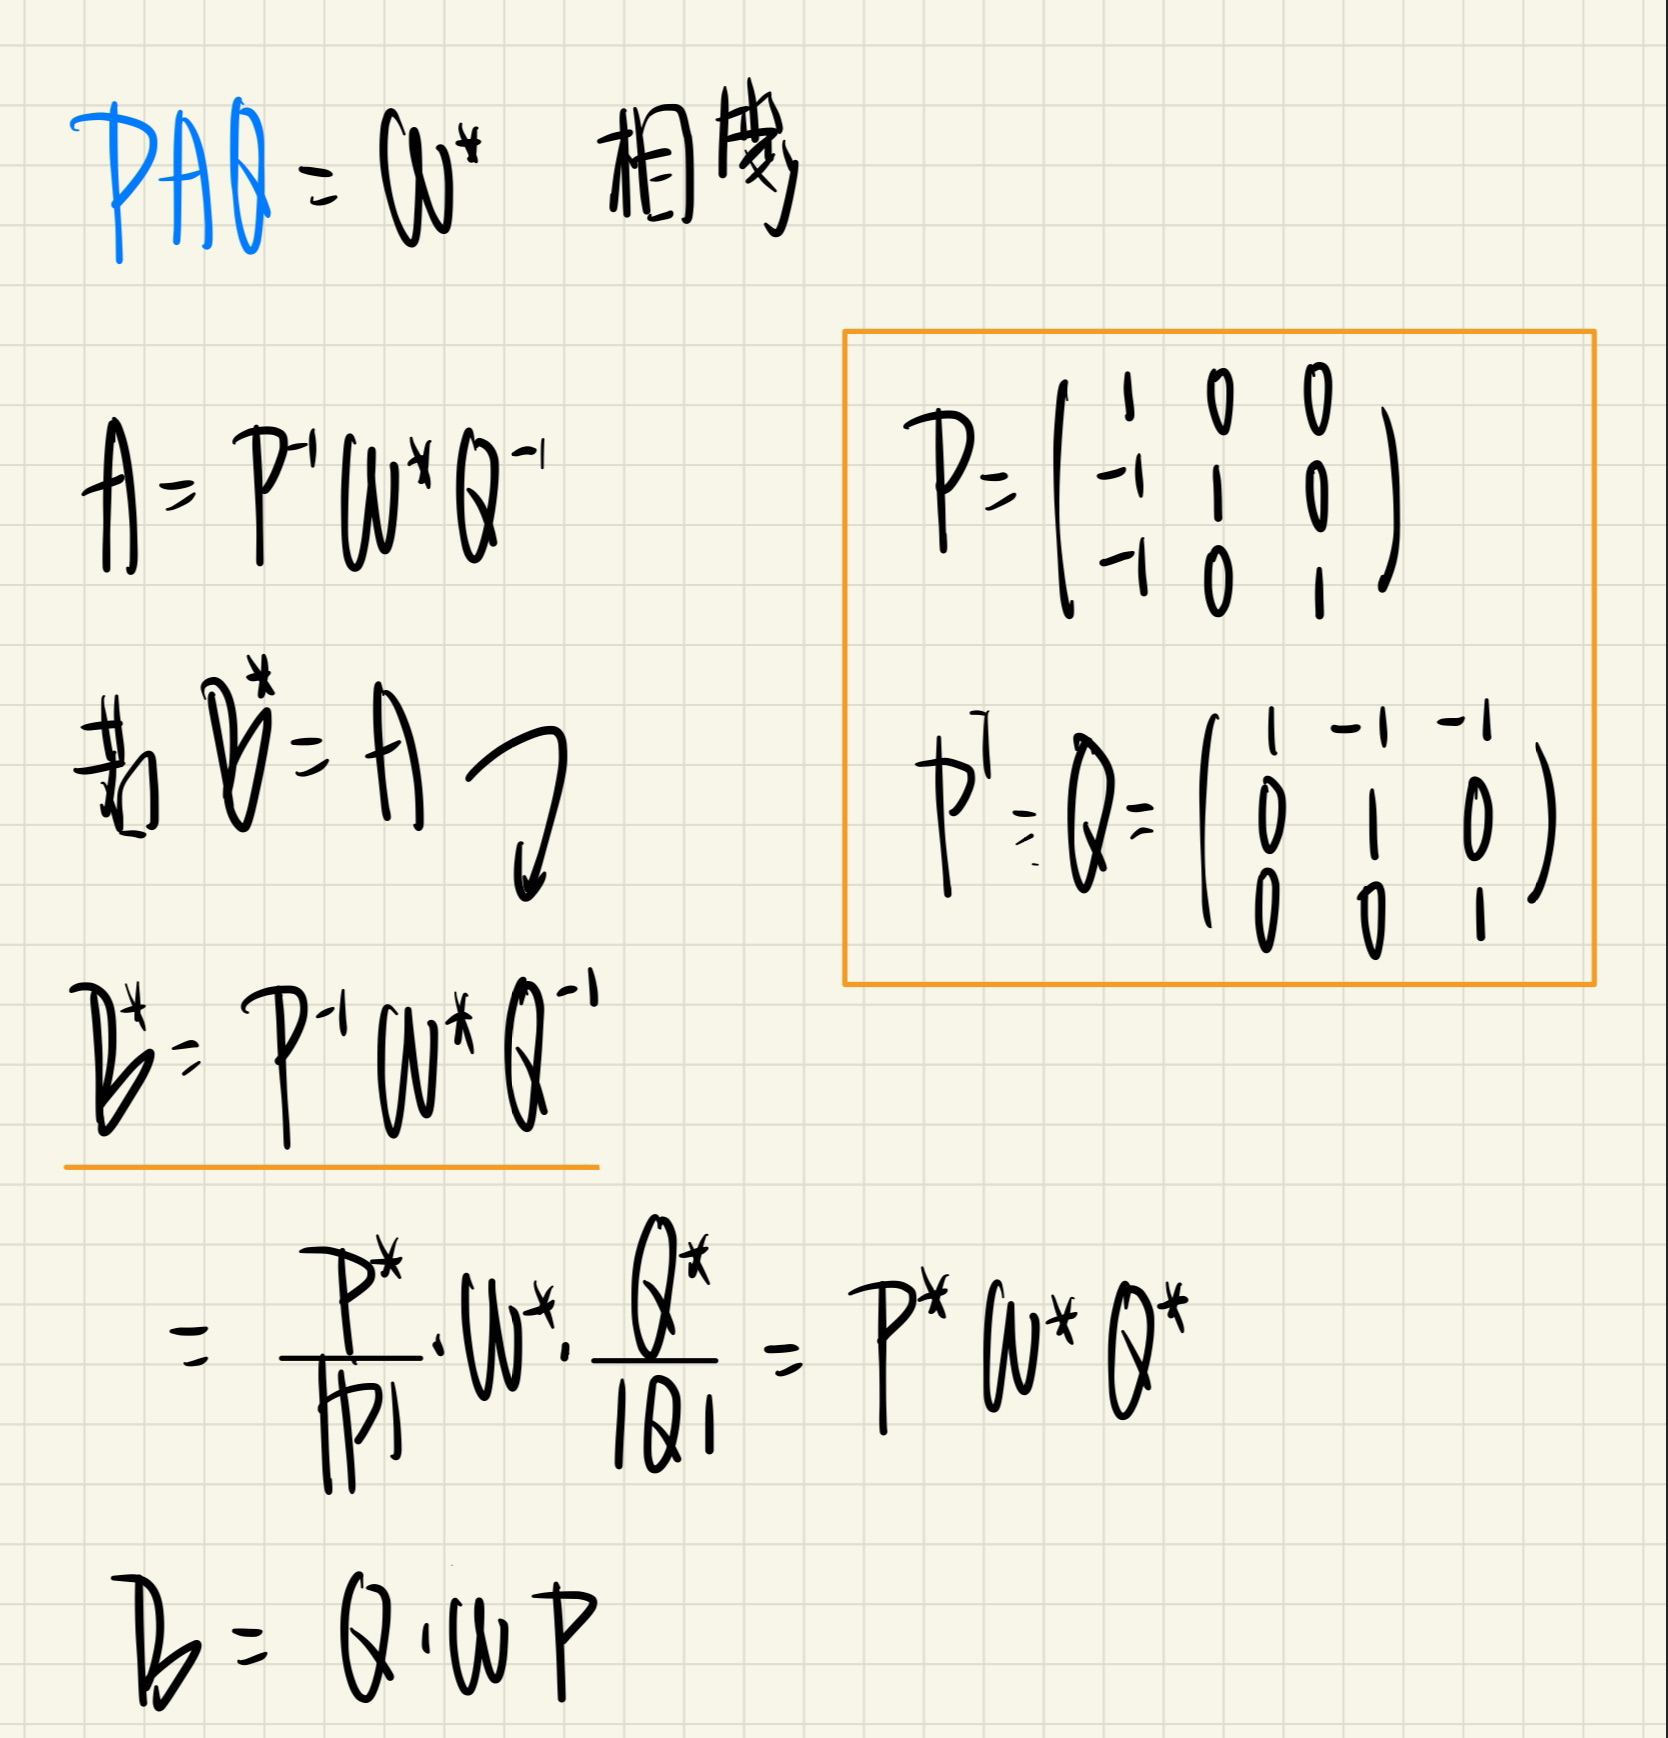 PAQ = W* 相
A = P⁻¹ W* Q⁻¹
B* = A
B* = P⁻¹ W* Q⁻¹
= P*/|P| · W* · Q*/|Q| = P* W* Q*
B = Q · W P
P = ( 1 0 0
-1 1 0
-1 0 1 )
Pᵀ = Q = ( 1 -1 -1
0 1 0
0 0 1 )